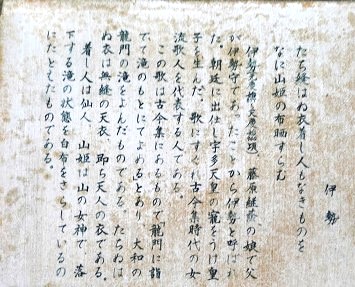 伊勢
たち縫はぬ衣着し人もなきものを
なに山姫の布晒すらむ
伊勢 藤原継蔭の娘で父
が伊勢守であったことから伊勢と呼ばれ
た。朝廷に出仕し宇多天皇の寵をうけ皇
子を生んだ。歌にすぐれ古今集時代の女
流歌人を代表する人である。
この歌は古今集にあるもので龍門に詣
でて滝のもとにてよめるとあり 大和の
龍門の滝をよんだものである。たちぬは
ぬ衣は無縫の天衣、即ち天人の衣である。
着し人は仙人、山姫は山の女神で 落
下する滝の状態を白布をさらしているの
にたとえたものである。